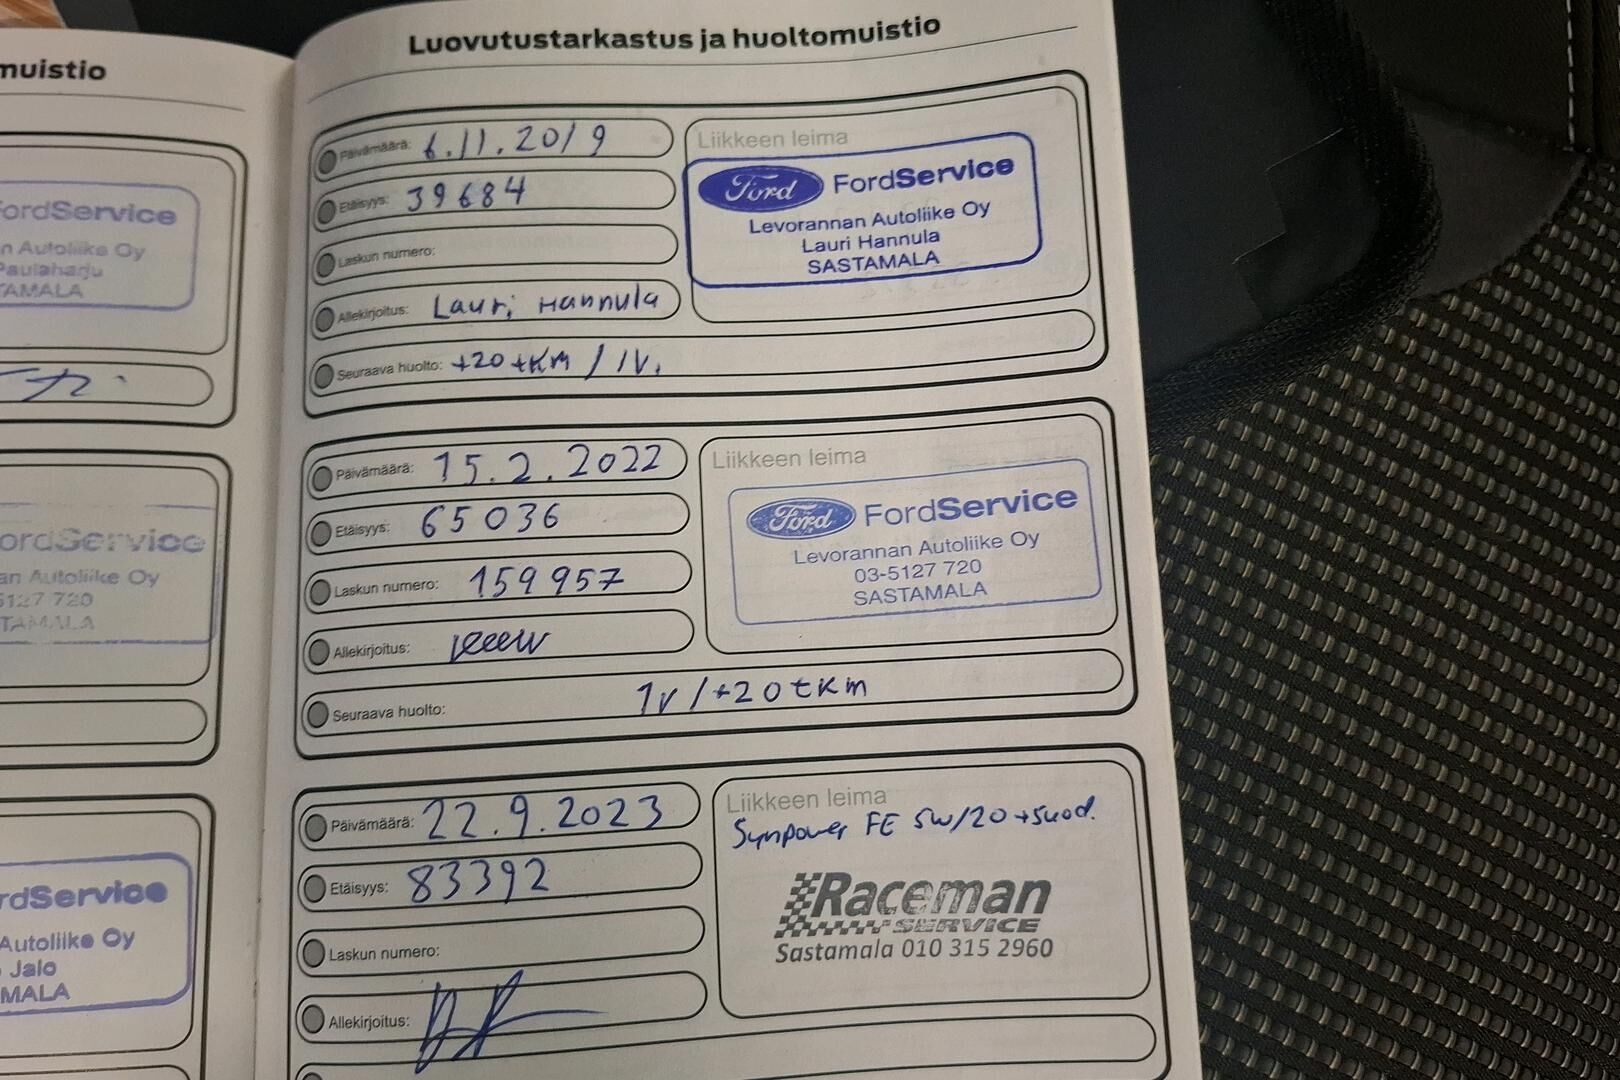 muistio
FordService
n Autoliike Oy
Paulaharju
TAMALA
ordService
an Autoliike Oy
5127 720
TAMALA
rdService
Autoliike Oy
Jalo
MALA
Luovutustarkastus ja huoltomuistio
Päivämäärä: 6.11.2019
Etäisyys: 39684
Laskun numero:
Allekirjoitus: Lauri Hannula
Seuraava huolto: +20 tkm / 1v.
Liikkeen leima
Ford FordService
Levorannan Autoliike Oy
Lauri Hannula
SASTAMALA
Päivämäärä: 15.2.2022
Etäisyys: 65036
Laskun numero: 159957
Allekirjoitus:
Seuraava huolto: 1v / +20 tkm
Liikkeen leima
Ford FordService
Levorannan Autoliike Oy
03-5127 720
SASTAMALA
Päivämäärä: 22.9.2023
Etäisyys: 83392
Laskun numero:
Allekirjoitus:
Liikkeen leima
Synpower FE 5w/20 +suod.
Raceman
SERVICE
Sastamala 010 315 2960